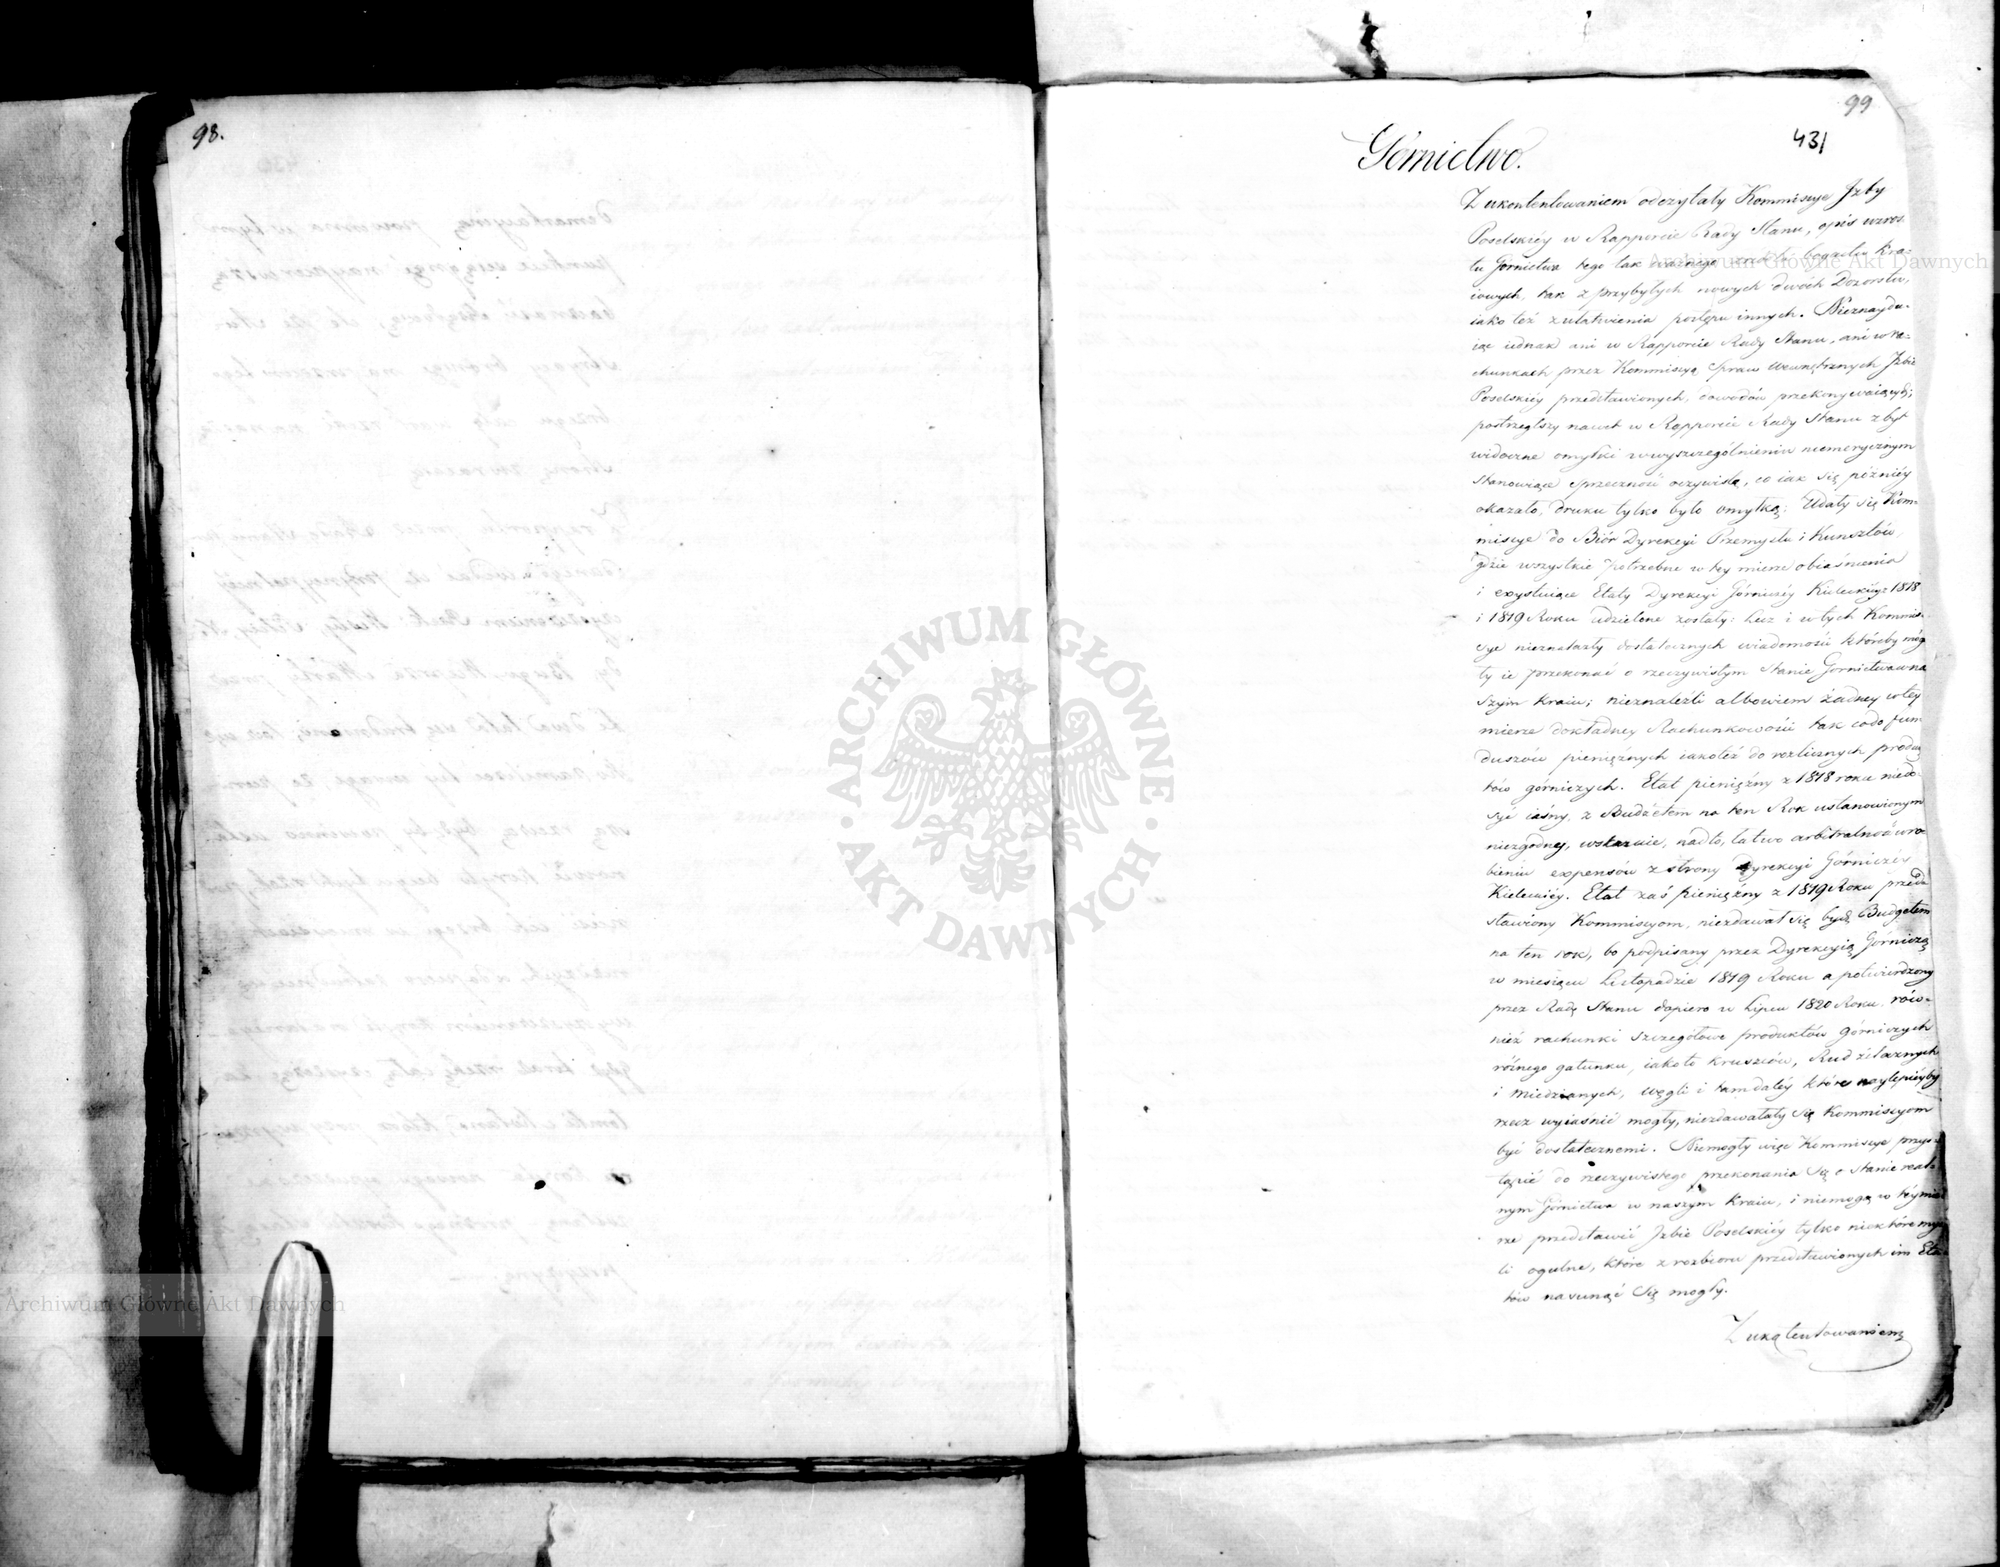 98.
99
431
Górnictwo.
Z ukontentowaniem odczytały Kommissye Jzby
Poselskiéy w Rapporcie Rady Stanu, opis wzros-
tu Górnictwa tego tak ważnego źródła bogactw Kra-
iowych, tak z przybyłych nowych dwóch Dozorstw,
iako też z ułatwienia postępu innych. Nieznaydu-
iąc iednak ani w Rapporcie Rady Stanu, ani w Ra-
chunkach przez Kommissyą Spraw Wewnętrznych Jzbie
Poselskiéy przedstawionych, dowodów przekonywaiących;
postrzegłszy nawet w Rapporcie Rady Stanu zbyt
widoczne omyłki w wyszczególnieniu numerycznym
stanowiące sprzeczność oczywistą, co iak się późniéy
okazało, druku tylko było omyłką; Udały się Kom-
missye do Biór Dyrekcyi Przemysłu i Kunsztów,
gdzie wszystkie potrzebne w tey mierze obiaśnienia
i exystuiące Etaty Dyrekcyi Górniczéy Kieleckiéy z 1818
i 1819 Roku udzielone zostały: lecz i w tych Kommis-
sye nieznalazły dostatecznych wiadomości któreby mog-
ły ie przekonać o rzeczywistym Stanie Górnictwa w na
szym Kraiu; nieznaleźli albowiem żadney w tey
mierze dokładney Rachunkowości tak co do fun
duszów pieniężnych iako też do rozlicznych produk
tów górniczych. Etat pieniężny z 1818 roku niedo-
syć iasny, z Budżetem na ten Rok ustanowionym
niezgodny, wskazuie, nadto, łatwo arbitralność w ro-
bieniu expensów z strony Dyrekcyi Górniczéy
Kieleckiéy. Etat zaś pieniężny z 1819 Roku przed
stawiony Kommissyom, niezdawał się być Budgetem
na ten rok, bo podpisany przez Dyrekcyią Górniczą
w miesiącu Listopadzie 1819 Roku a potwierdzony
przez Radę Stanu dopiero w Lipcu 1820 Roku. rów-
nież rachunki szczegółowe produktów górniczych
różnego gatunku, iako to kruszców, Rud żelaznych
i miedzianych, węgli i tam daléy które naylepiéyby
rzecz wyiaśnić mogły, niezdawałały się Kommissyom
być dostatecznemi. Niemogły więc Kommissye przys-
tąpić do rzeczywistego przekonania się o stanie real-
nym Górnictwa w naszym Kraiu, i niemogą w téy mie
rze przedstawić Jzbie Poselskiéy tylko niektóre myś
li ogulne, które z rozbioru przedstawionych im Eta
tów nasunąć się mogły.
Z ukątentowaniem
ARCHIWUM GŁÓWNE
AKT DAWNYCH
Archiwum Główne Akt Dawnych
Archiwum Główne Akt Dawnych